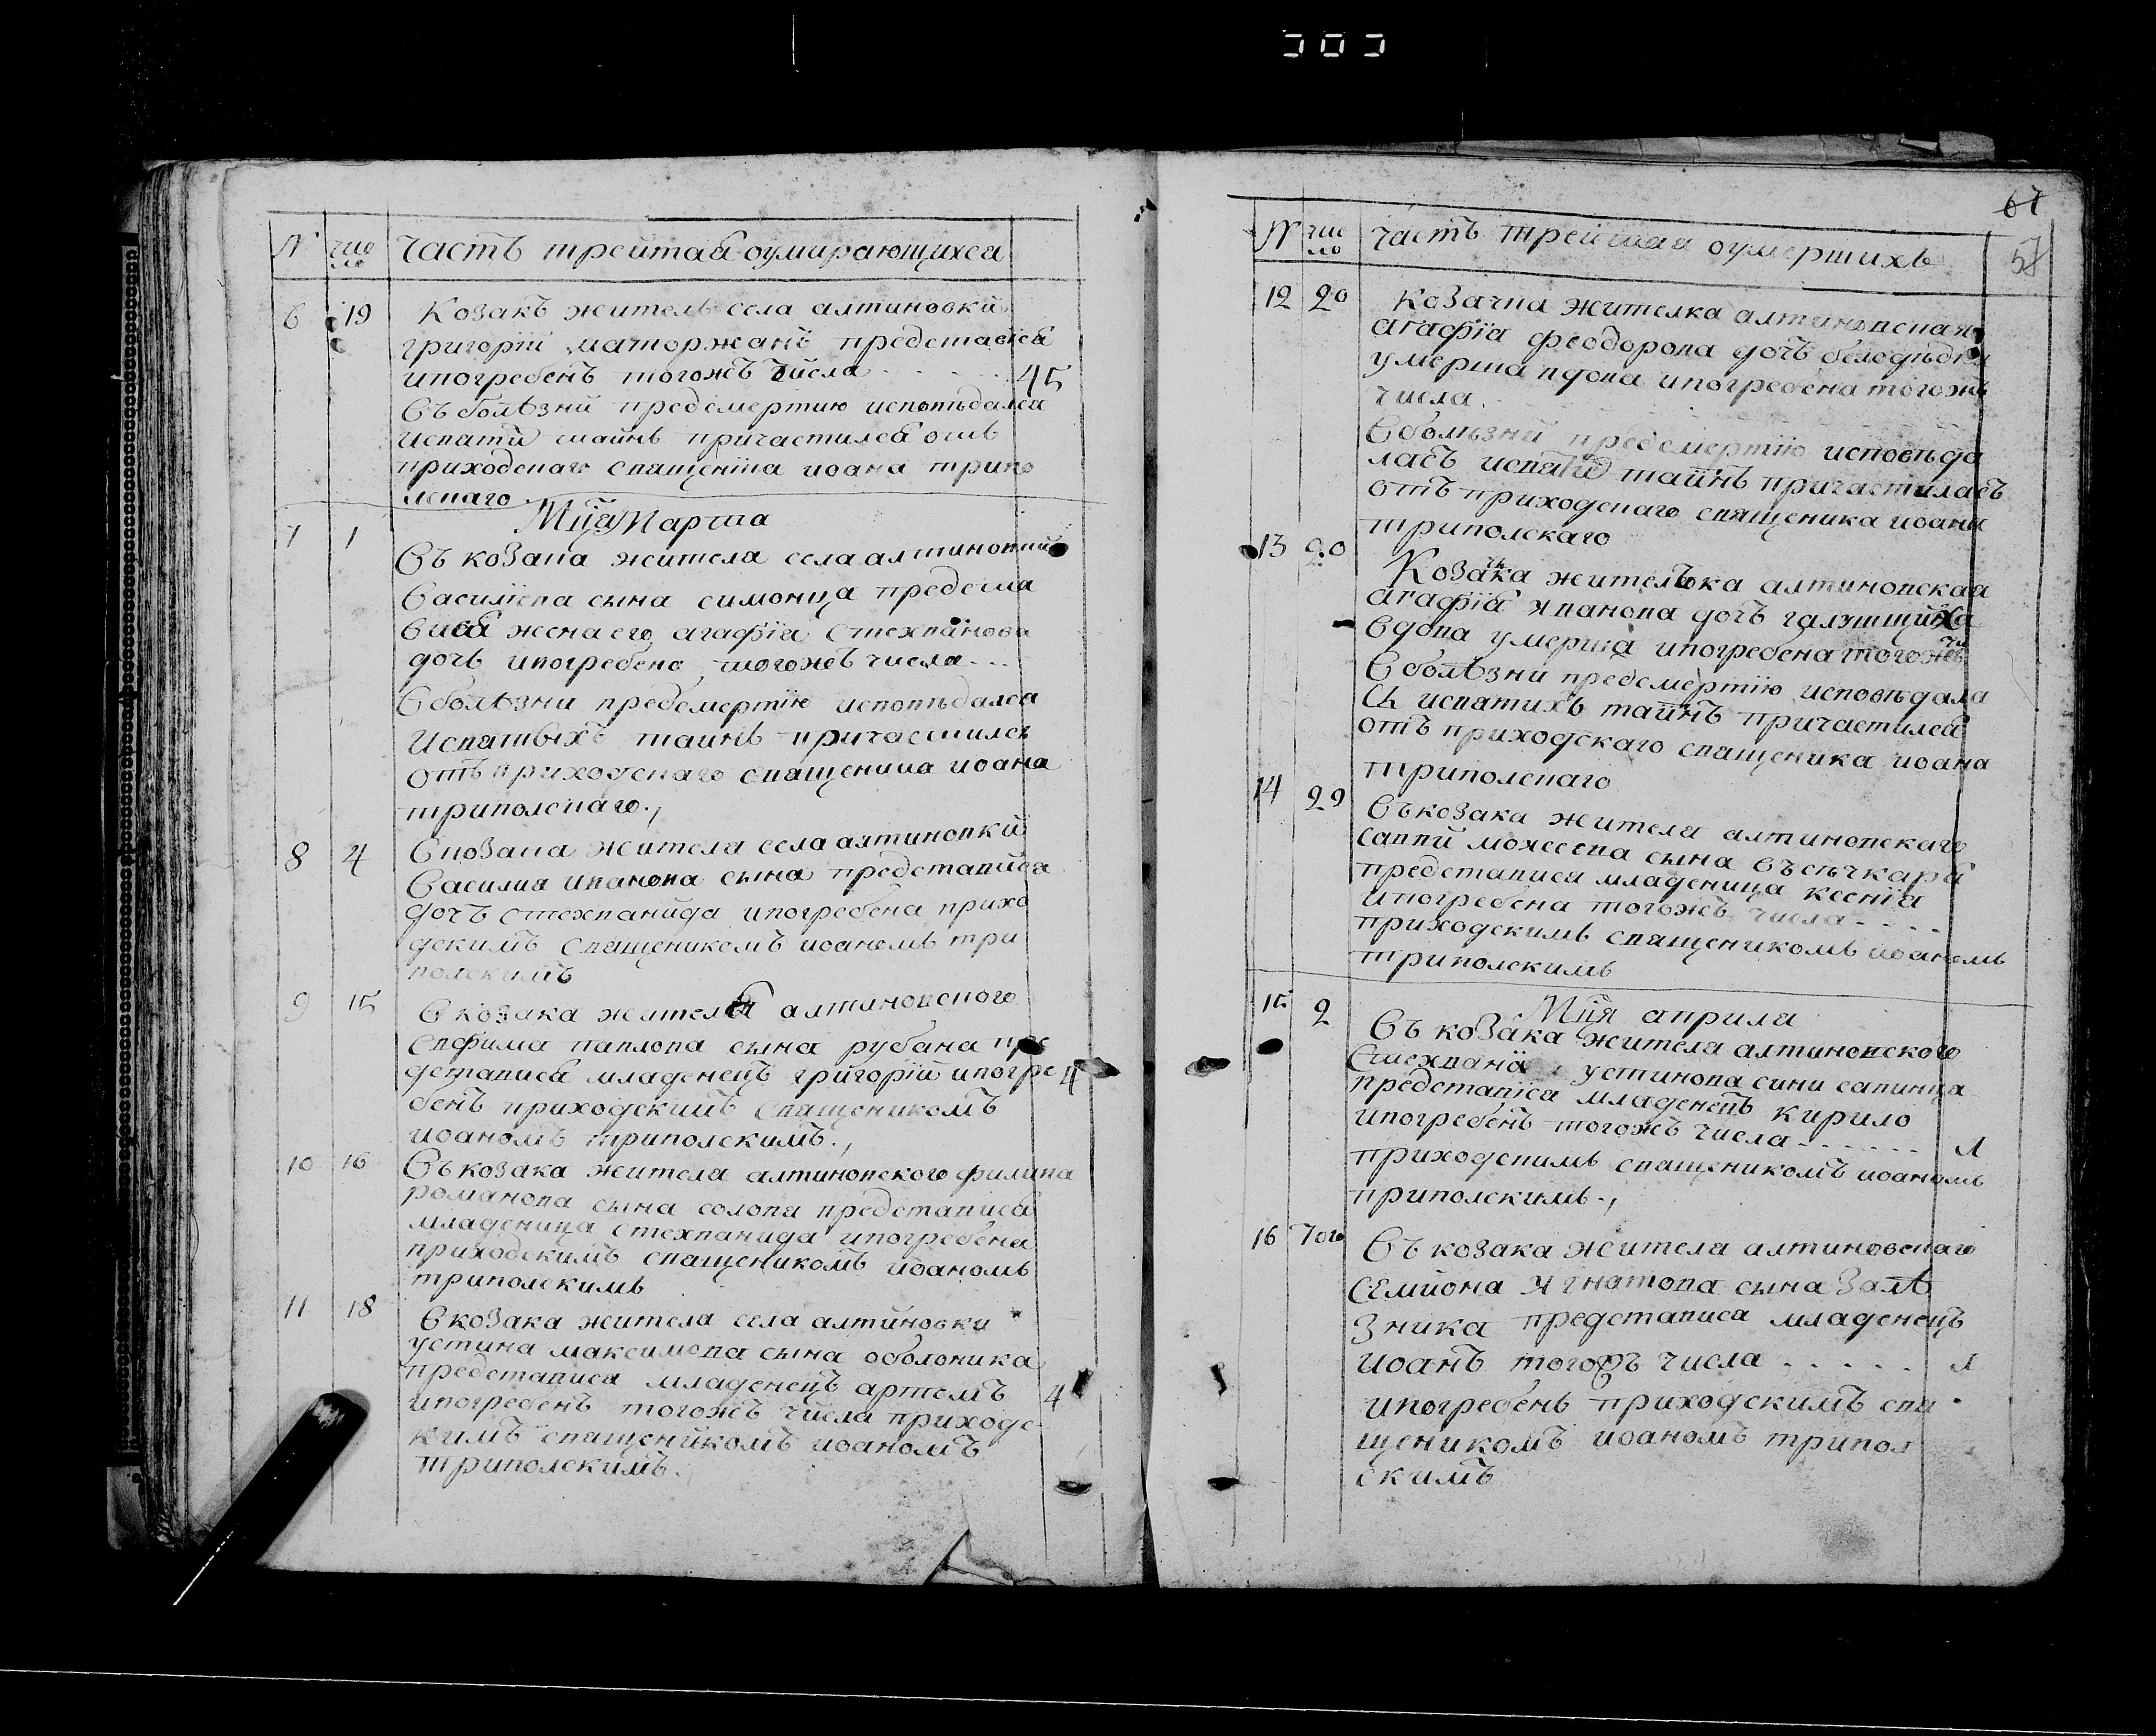 N число Часть трейтая оумирающихся
6 19 Козакъ житель села алтиновки
григорiй маторжанъ представисѧ
ипогребенъ тогожъ числа . . . . 45
Въ болѣзни предсмертию исповѣдался
испати тайнъ причастился отъ
приходскаго спащеника иоана трипо
лскаго
Мця Марта
7 1
Въ козака жителя села алтиновки
Василiева сына симонца предста
вися жена его агафiя Стехпанова
дочь ипогребена тогожъ числа...
Вболѣзни предсмертiю исповѣдался
Испатыхъ таинъ причастился
отъ приходскаго спащеника иоана
триполскаго.,
8 4 Вкозака жителя села алтиновки
Василия иванова сына представися
дочъ стехпанида ипогребена прихо
дскимъ спащеникомъ иоаномъ три
полскимъ
9 15 Вкозака жителя алтиновского
Евфима павлова сына рубана пре
дставися младенецъ григорiй ипогре 4
бенъ приходскимъ спащеникомъ
иоаномъ триполскимъ.,
10 16 Въ козака жителя алтиновского филипа
романова сына солопи представися
младеница стехпанида ипогребена
приходскимъ спащеникомъ иоаномъ
триполскимъ
11 18 Вкозака жителя села алтиновки
устина максимова сына оболоника
представися младенецъ артемъ 4
ипогребенъ тогожъ числа приходс
кимъ спащеникомъ иоаномъ
триполскимъ.
67
N число Часть трейтая оумершихъ 57
12 20 Козачка жителка алтиновская
агафiя феодорова дочъ
умерша вдова ипогребена тогожъ
числа.
Вболѣзни предсмертiю исповѣда
ласъ испатй тайнъ причастиласъ
отъ приходскаго спащеника иоана
триполскаго
13 20
Козачка жителька алтиновская
агафiя иванова дочъ
вдова умерша ипогребена тогожъ чи
Вболѣзни предсмертiю исповѣдала
сь испатихъ тайнъ причастилсѧ
отъ приходскаго спащеника иоана
триполскаго
14 29 Въ козака жителя алтиновскаго
саппи мойсеева сына въсѣчкаря
представися младеница ксенiя
ипогребена тогожъ числа . . . .
приходскимъ спащеникомъ иоаномъ
триполскимъ
Мця априля
15 2 Въ козака жителя алтиновского
Стехпана устинова сини сапинца
представися младенецъ кирило
ипогребенъ тогожъ числа . . . . . л
приходскимъ спащеникомъ иоаномъ
триполскимъ.,
16 Того Въ козака жителя алтиновскаго
Семйона Игнатова сына Залѣ
зника представися младенецъ
иоанъ тогожъ числа . . . . . л
ипогребенъ приходскимъ спа
щеникомъ иоаномъ трипол
скимъ